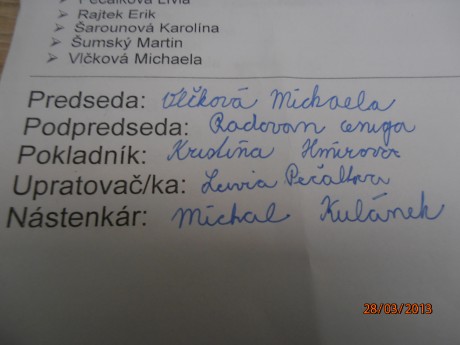 Pečalková Lívia
➢ Rajtek Erik
➢ Šarounová Karolína
➢ Šumský Martin
➢ Vlčková Michaela
Predseda: Vlčková Michaela
Podpredseda: Radovan
Pokladník: Kristína
Upratovač/ka: Livia
Nástenkár: Michal Kulánek
28/03/2013